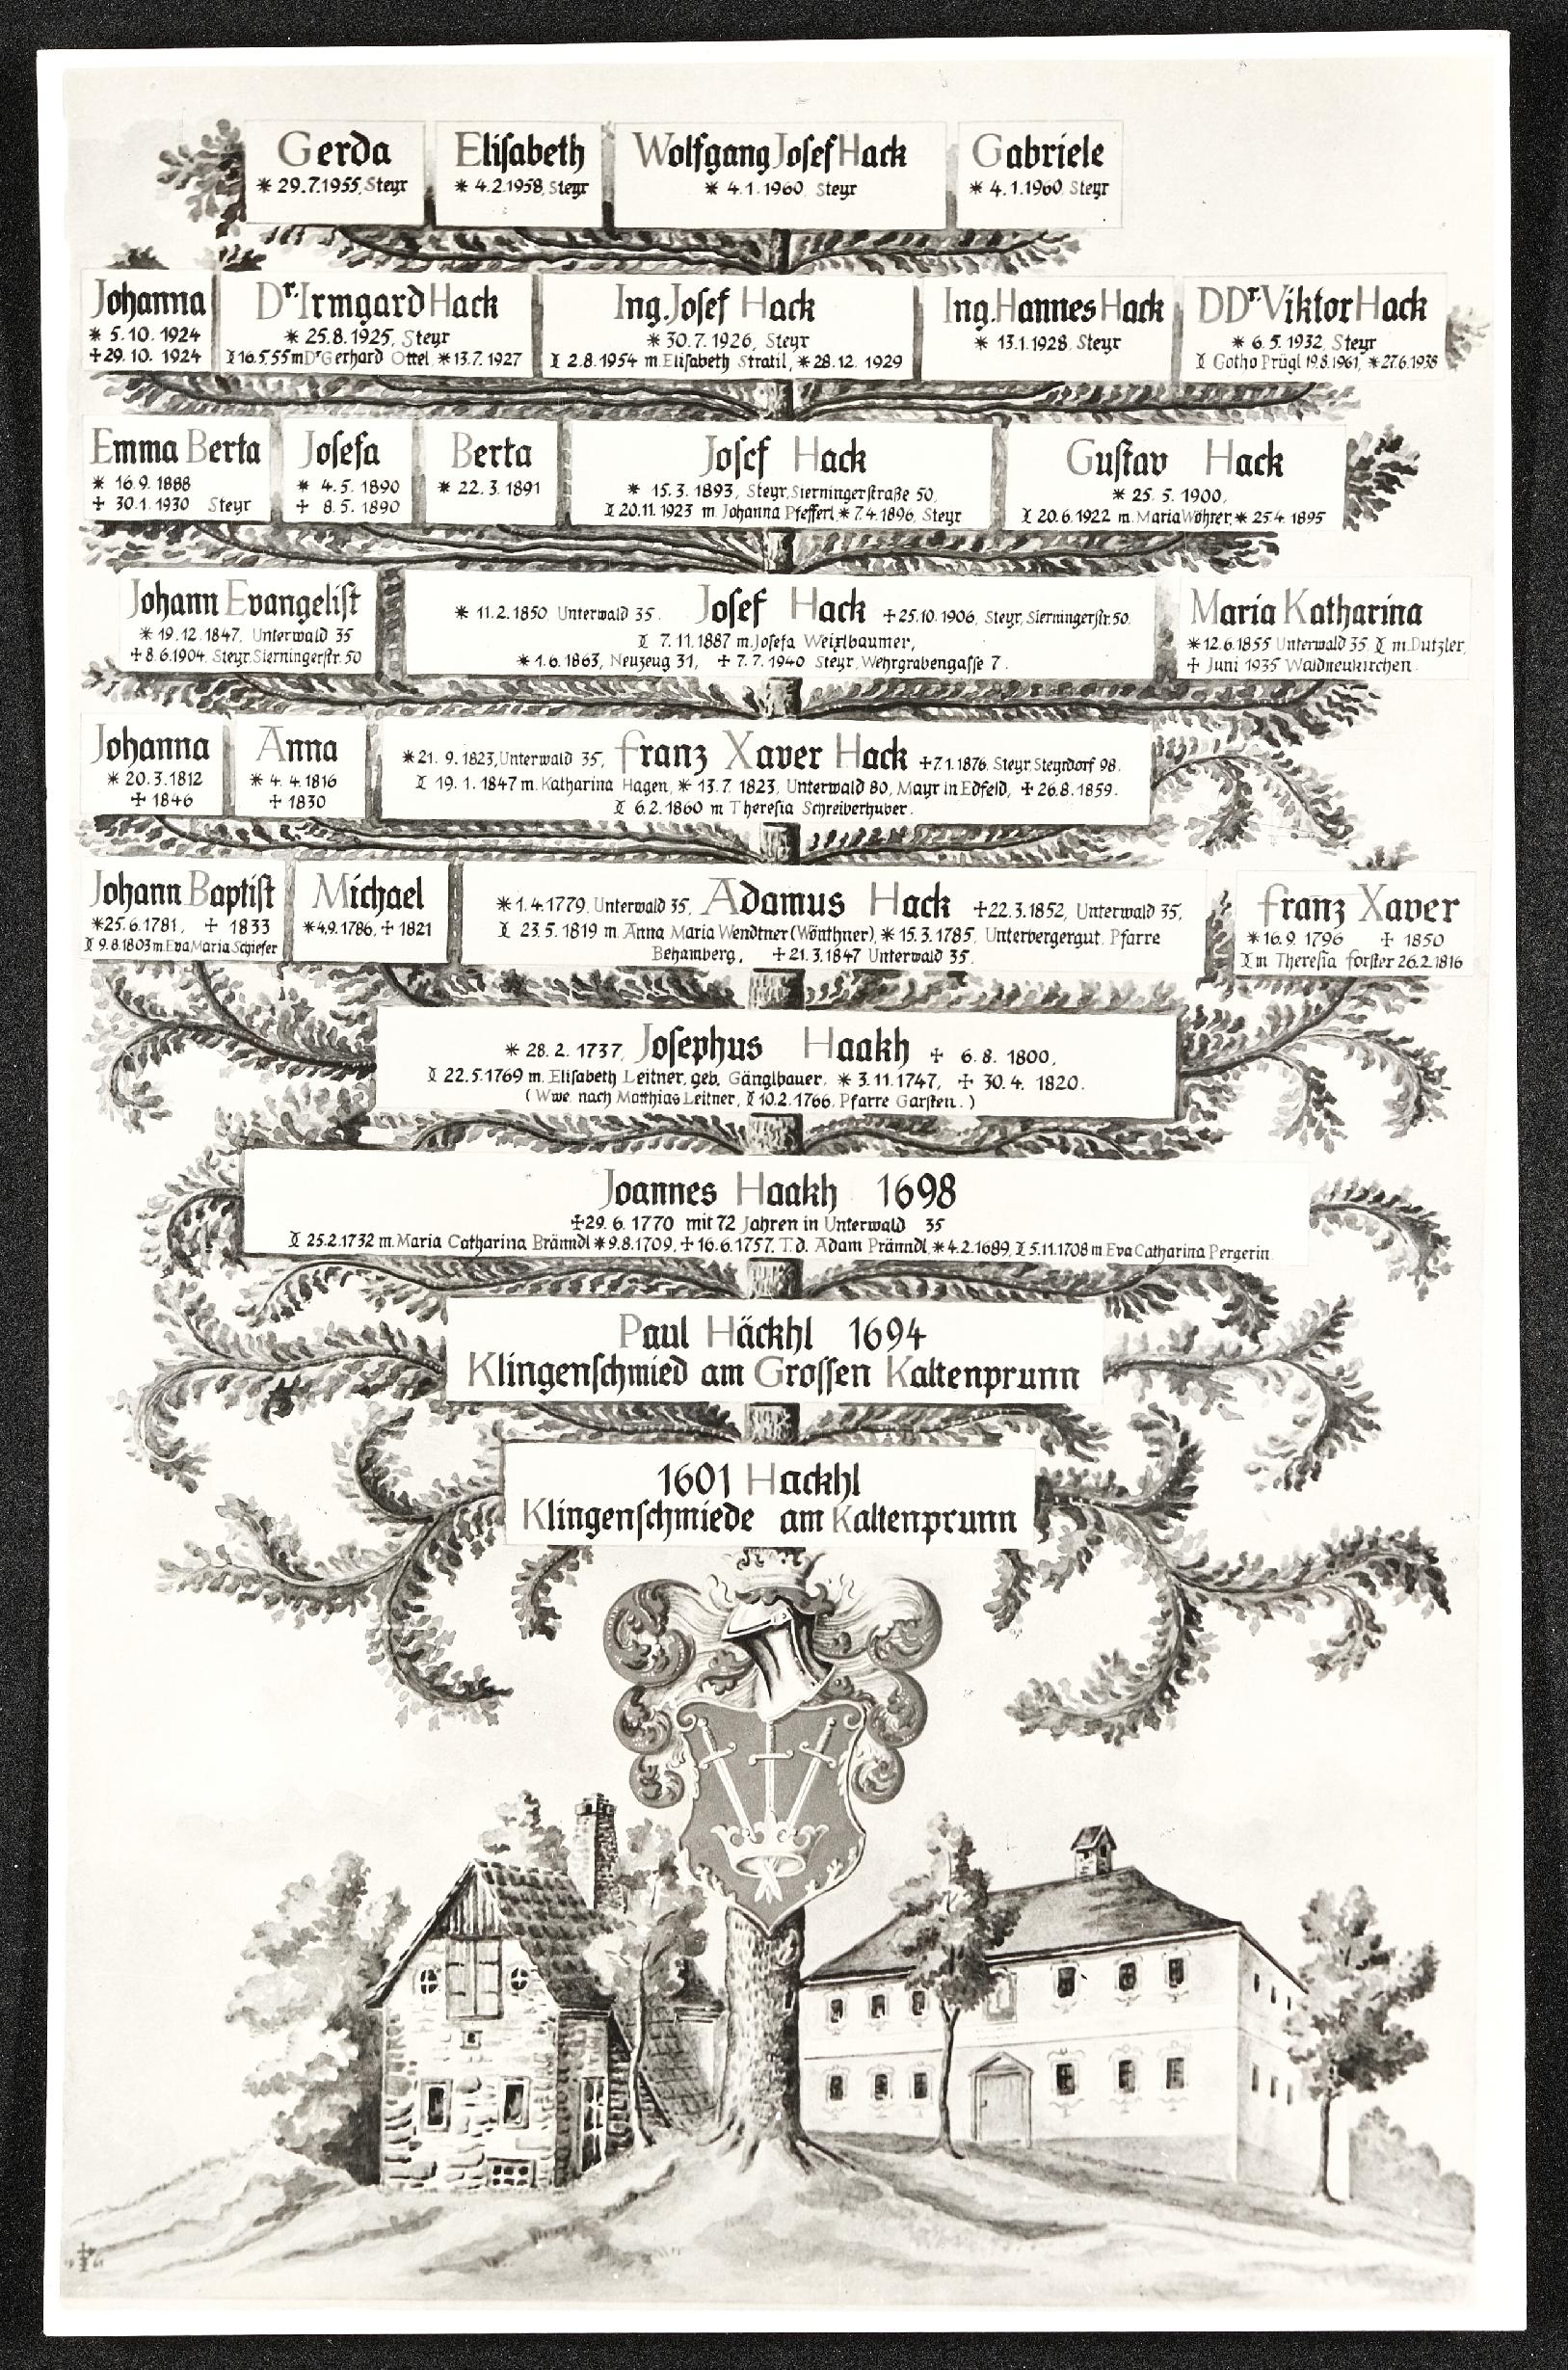 Gerda
* 29.7.1955, Steyr
Elisabeth
* 4.2.1958, Steyr
Wolfgang Josef Hack
* 4.1.1960, Steyr
Gabriele
* 4.1.1960, Steyr
Johanna
* 5.10.1924
+ 29.10.1924
Dr. Irmgard Hack
* 25.8.1925, Steyr
⚭ 16.5.55 m Dr Gerhard Ottel, * 13.7.1927
Ing. Josef Hack
* 30.7.1926, Steyr
⚭ 2.8.1954 m. Elisabeth Stratil, * 28.12.1929
Ing. Hannes Hack
* 13.1.1928, Steyr
DDr. Viktor Hack
* 6.5.1932, Steyr
⚭ Gotho Prügl 19.8.1961, * 27.6.1938
Emma Berta
* 16.9.1888
+ 30.1.1930 Steyr
Josefa
* 4.5.1890
+ 8.5.1890
Berta
* 22.3.1891
Josef Hack
* 15.3.1893, Steyr, Sierningerstraße 50,
⚭ 20.11.1923 m. Johanna Pfefferl, * 7.4.1896, Steyr
Gustav Hack
* 25.5.1900,
⚭ 20.6.1922 m. Maria Wöhrer, * 25.4.1895
Johann Evangelist
* 19.12.1847, Unterwald 35
+ 8.6.1904, Steyr, Sierningerstr. 50
* 11.2.1850 Unterwald 35. Josef Hack + 25.10.1906, Steyr, Sierningerstr. 50.
⚭ 7.11.1887 m. Josefa Weixlbaumer,
* 1.6.1863, Neuzeug 31, + 7.7.1940 Steyr, Wehrgrabengasse 7.
Maria Katharina
* 12.6.1855 Unterwald 35 ⚭ m. Dutzler,
+ Juni 1935 Waldneukirchen.
Johanna
* 20.3.1812
+ 1846
Anna
* 4.4.1816
+ 1830
* 21.9.1823, Unterwald 35, Franz Xaver Hack + 7.1.1876, Steyr, Steyrdorf 98.
⚭ 19.1.1847 m. Katharina Hagen, * 13.7.1823, Unterwald 80, Mayr in Edfeld, + 26.8.1859.
⚭ 6.2.1860 m Theresia Schreiberhuber.
Johann Baptist
* 25.6.1781, + 1833
⚭ 9.8.1803 m Eva Maria Schiefer
Michael
* 4.9.1786, + 1821
* 1.4.1779, Unterwald 35, Adamus Hack + 22.3.1852, Unterwald 35,
⚭ 23.5.1819 m. Anna Maria Wendtner (Wönthner), * 15.3.1785, Unterbergergut, Pfarre
Behamberg, + 21.3.1847 Unterwald 35.
Franz Xaver
* 16.9.1796 + 1850
⚭ m Theresia Forster 26.2.1816
* 28.2.1737, Josephus Haakh + 6.8.1800,
⚭ 22.5.1769 m. Elisabeth Leitner, geb. Gänglbauer, * 3.11.1747, + 30.4.1820.
(Wwe. nach Matthias Leitner, ⚭ 10.2.1766. Pfarre Garsten.)
Joannes Haakh 1698
+ 29.6.1770 mit 72 Jahren in Unterwald 35
⚭ 25.2.1732 m. Maria Catharina Bränndl * 9.8.1709, + 16.6.1757, T.d. Adam Pränndl, * 4.2.1689, ⚭ 5.11.1708 m Eva Catharina Pergerin
Paul Häckhl 1694
Klingenschmied am Grossen Kaltenprunn
1601 Hackhl
Klingenschmiede am Kaltenprunn